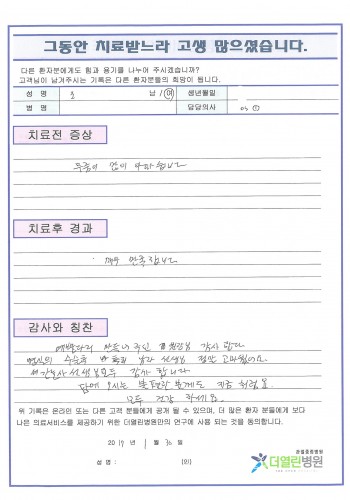 그동안 치료받느라 고생 많으셨습니다.
다른 환자분에게도 힘과 용기를 나누어 주시겠습니까?
고객님이 남겨주시는 기록은 다른 환자분들의 희망이 됩니다.
성 명 남 / 여 생년월일
병 명 담당의사
치료전 증상
무릎이 많이 아파습니다
치료후 경과
매우 만족합니다
감사와 칭찬
예쁜다리 만드러 주신 원장님 감사합니다
선생님 정말 고마웠어요.
간호사 선생님 모두 감사합니다
담에 오시는 분들께도 지금 처럼
모두 건강 하세요
위 기록은 온라인 또는 다른 고객 분들에게 공개 될 수 있으며, 더 많은 환자 분들에게 보다
나은 의료서비스를 제공하기 위한 더열린병원만의 연구에 사용 되는 것을 동의합니다.
2019 년 1 월 30 일
성 명 : (인)
관절중점병원
더열린병원